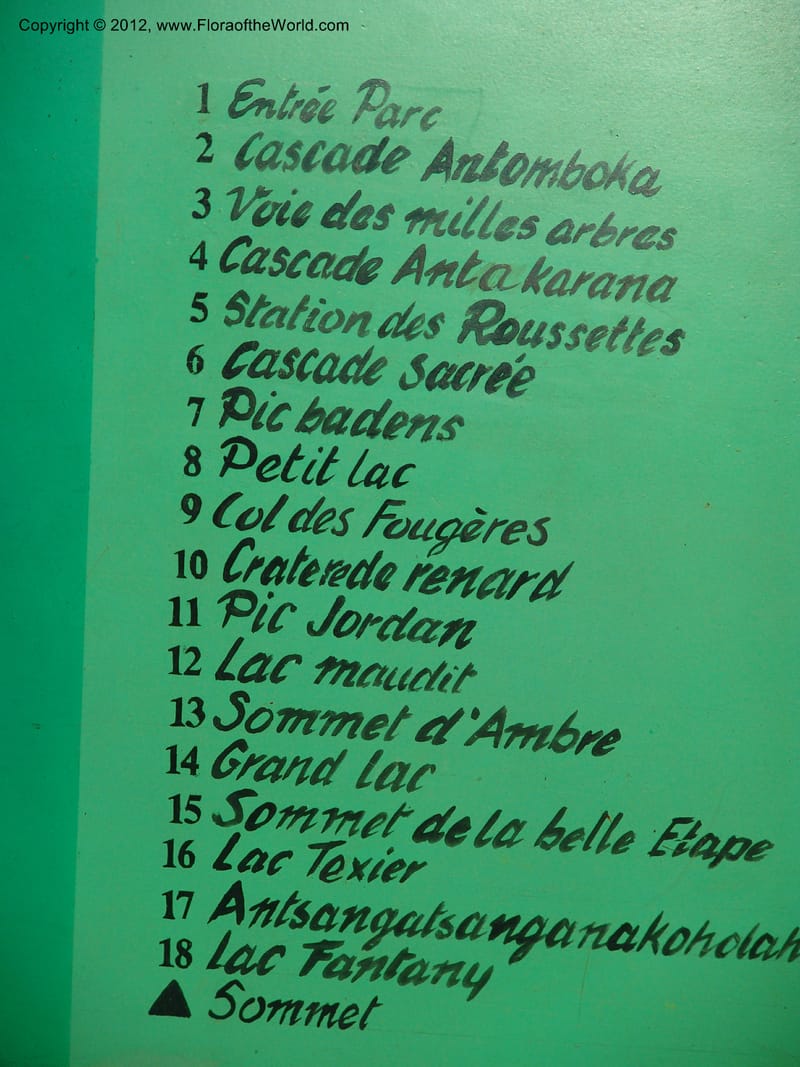 Copyright © 2012, www.FloraoftheWorld.com
1 Entrée Parc
2 Cascade Antomboka
3 Voie des milles arbres
4 Cascade Antakarana
5 Station des Roussettes
6 Cascade Sacrée
7 Pic badens
8 Petit lac
9 Col des Fougères
10 Craterede renard
11 Pic Jordan
12 Lac maudit
13 Sommet d'Ambre
14 Grand lac
15 Sommet de la belle Etape
16 Lac Texier
17
18 Lac Fantany
▲ Sommet